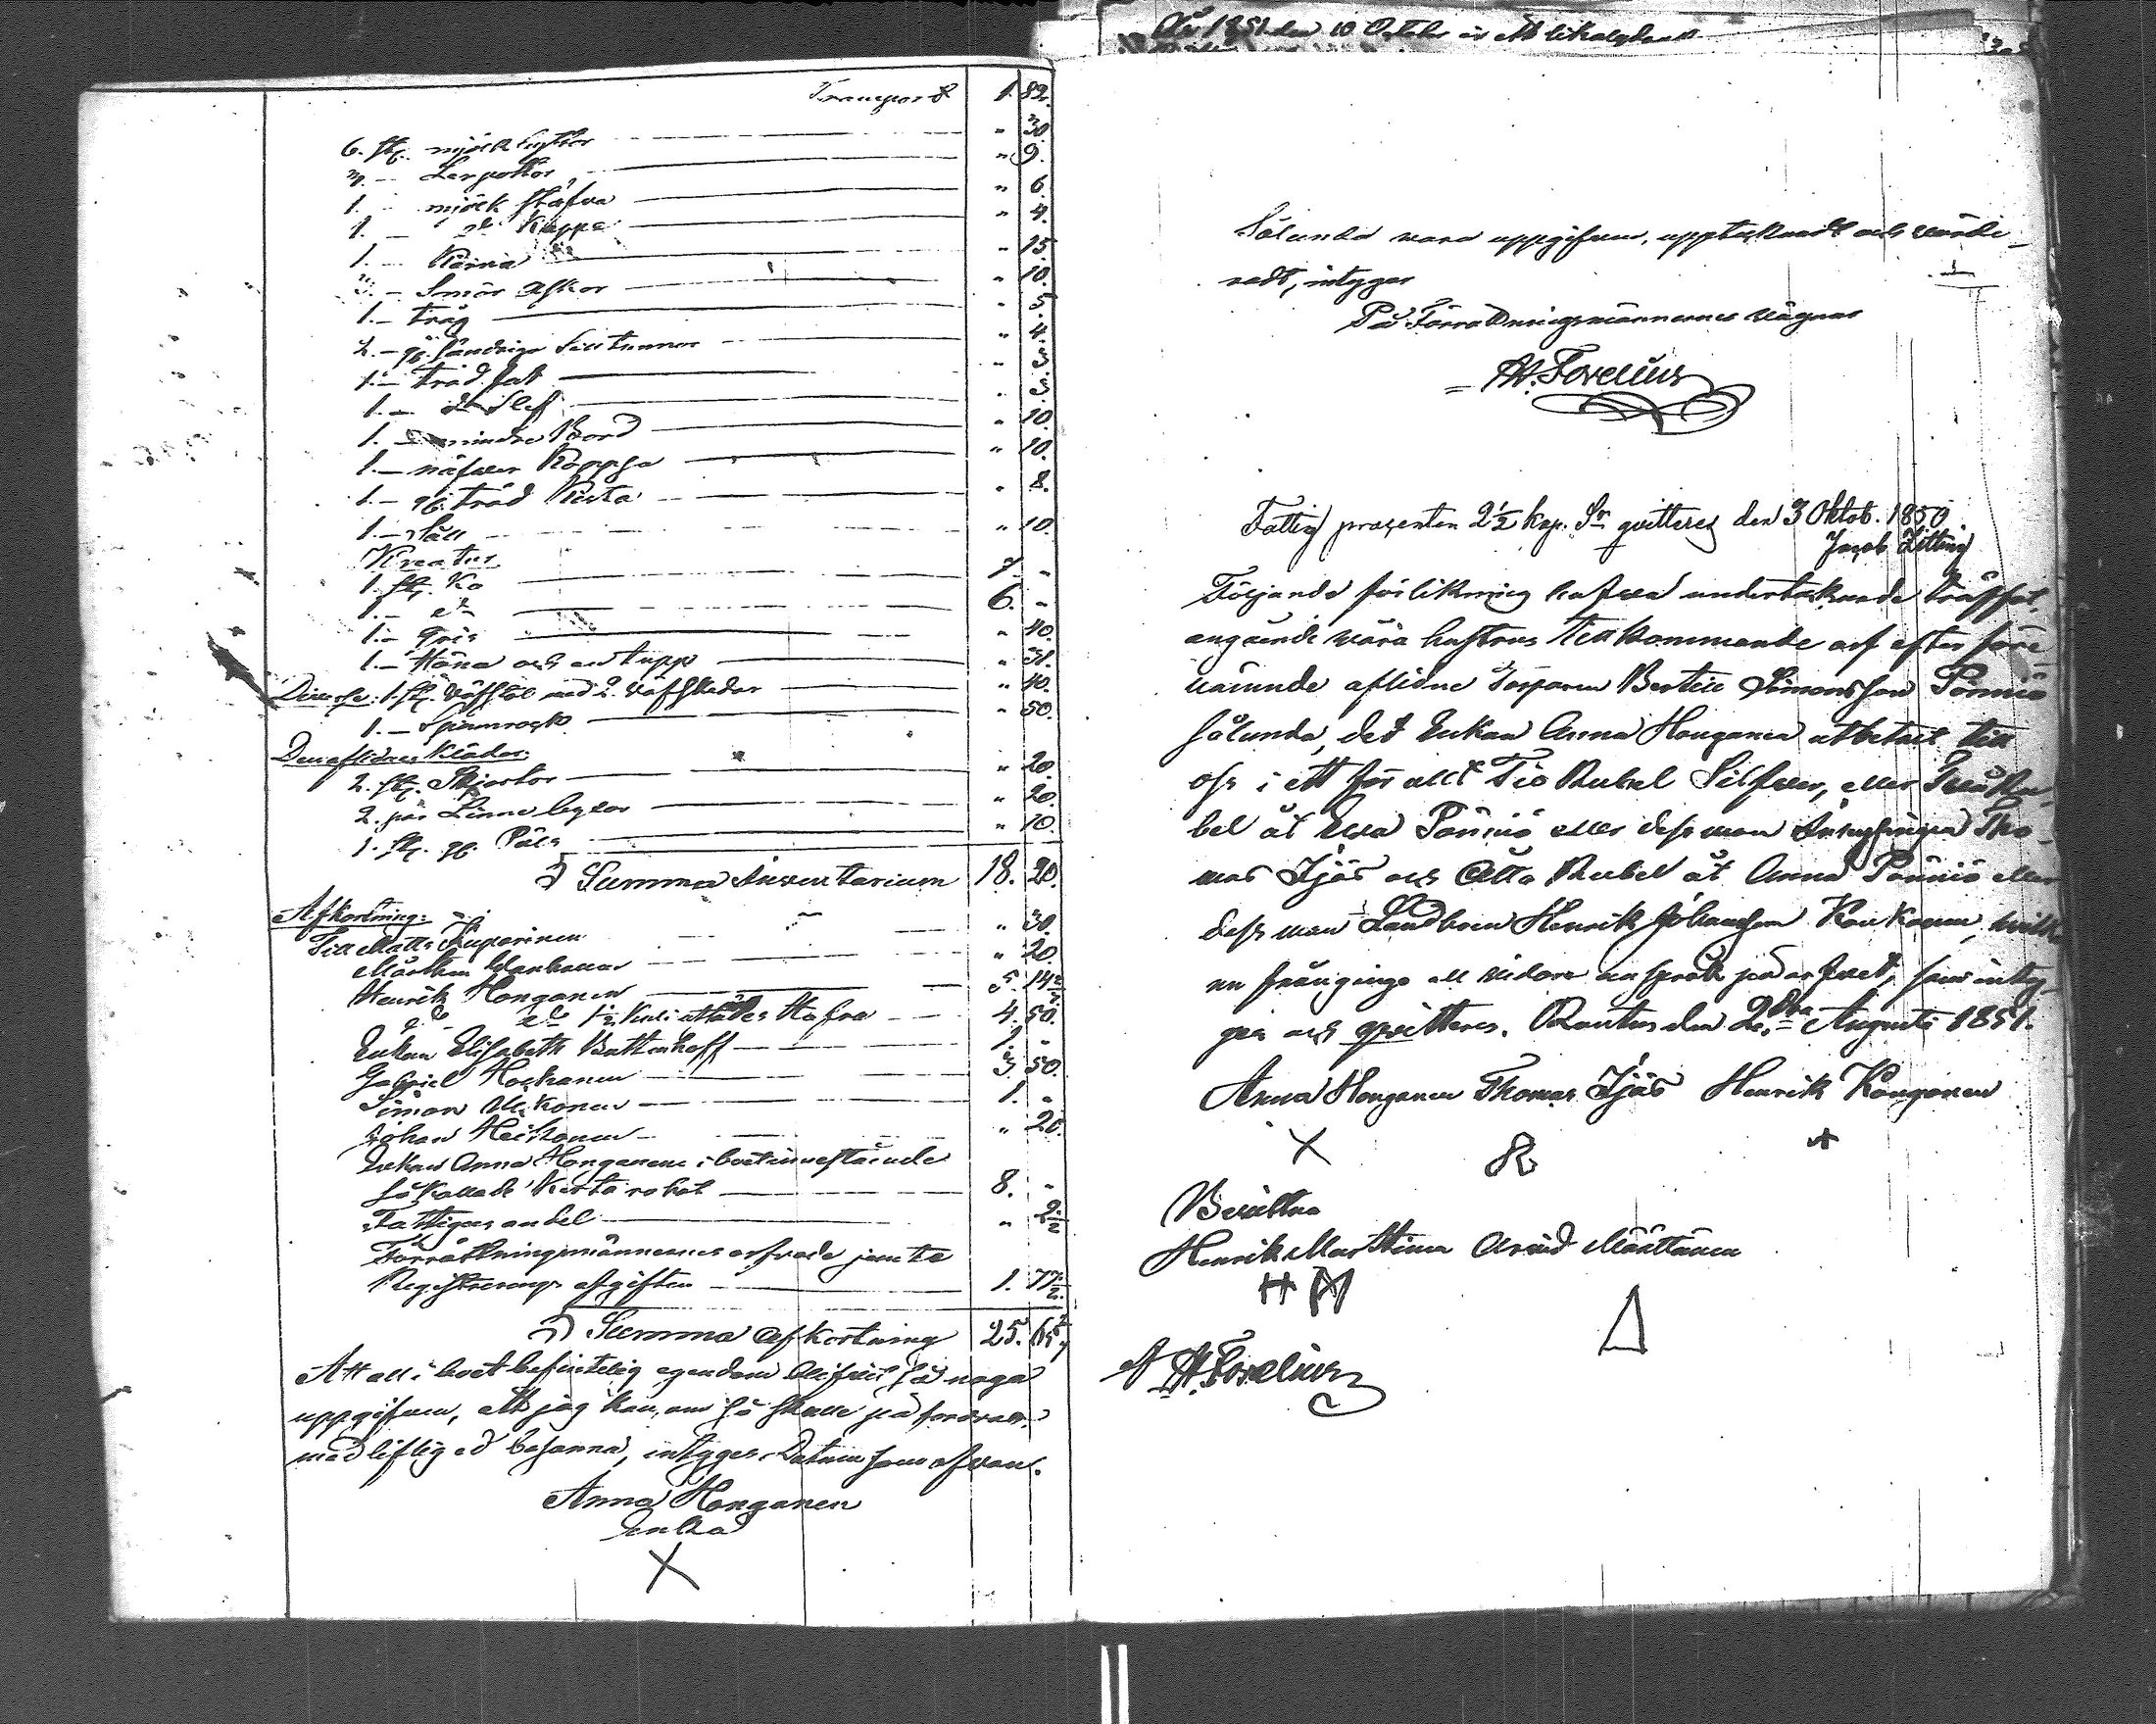 Transport 1. 82.
6. st. mjölk byttor " 30.
3. — Lerpottor " 9.
1. mjölk stäfva " 6.
1. — do Kappa " 4.
1. — Kärna " 15.
3. — Smör Askor " 10.
1. — tråg " 5.
2. — gl. sandriga Silltunnor " 4.
1. — träd fat " 3.
1. — do Slef " 3.
1. — mindre Bord " 10.
1. — näfver Koppsa " 10.
1. — gl. träd Kista " 8.
1. — Såll " 10.
Kreatur
1. st. Ko 7. "
1. — do 6. "
1. — Gris " 40.
1. — Höna och en tupp " 31.
Diverse: 1. st. Väfstol med 2. Väfskedar " 40.
1. — Spinnrock " 50.
Den aflidnes Kläder:
2. st. Skjortor " 20.
2. par Linne byxor " 20.
1. st. gl. Päls " 10.
Summa Inventarium 18. 20.
Afkortning:
Till Matts Kuparinen " 30.
Mårthen Wanhanen " 20.
Henrik Honganen 5. 14 2/7
do do 1 1/2 Kuli Hafra 4. 50.
Enkan Elisabeth Buttenhoff 1. "
Gabriel Hockanen 3. 50.
Simon Ukkonen 1. "
Johan Heikonen " 20.
Enkan Anna Honganens i boet innestående
så kallade Kista rahat 8. "
Fattigas andel " 2 1/2
Förrättningsmännernes arfvode jemte
Registrerings afgiften 1. 77 1/2
Summa afkortning 25. 64 2/7
Att all i boet befintelig egendom blifvit så noga
uppgifven, att jag kan, om så skulle på fordras
med liflig ed besanna, intyges. Datum som ofvan.
Anna Honganen
Enka
X
År 1851 den 10 October är ett likalydande
Sålunda vara uppgifven, upptecknadt och värde-
radt, intygar
På Förrättningsmännernes vägnar
Forelius
Fattig procenten 2 1/2 kop. Sr qvitteres den 3 Oktob. 1850
Jacob Zitting
Följande förlikning hafva undertecknade träffat,
angående våra hustrus tillkommande arf efter före-
nämnde aflidne Torparen Bertill Simonsson Pönniö
sålunda, det Enkan Anna Honganen utbetalt till
oss i ett för allt Tio Rubel Silfver, eller Två Ru-
bel åt Eva Pönniö eller dess man Inhysingen Tho-
mas Ijäs och Åtta Rubel åt Anna Pönniö eller
dess man Landboen Henrik Johansson Konkonen, hvilka
nu frångingo all vidare anspråk på arfvet, som inty-
ges och qvitteres. Rautus den 2dra Augusti 1851.
Anna Honganen Thomas Ijäs Henrik Kongonen
X
Bevittna
Henrik Marttinen Arvid Määttänen
Forelius